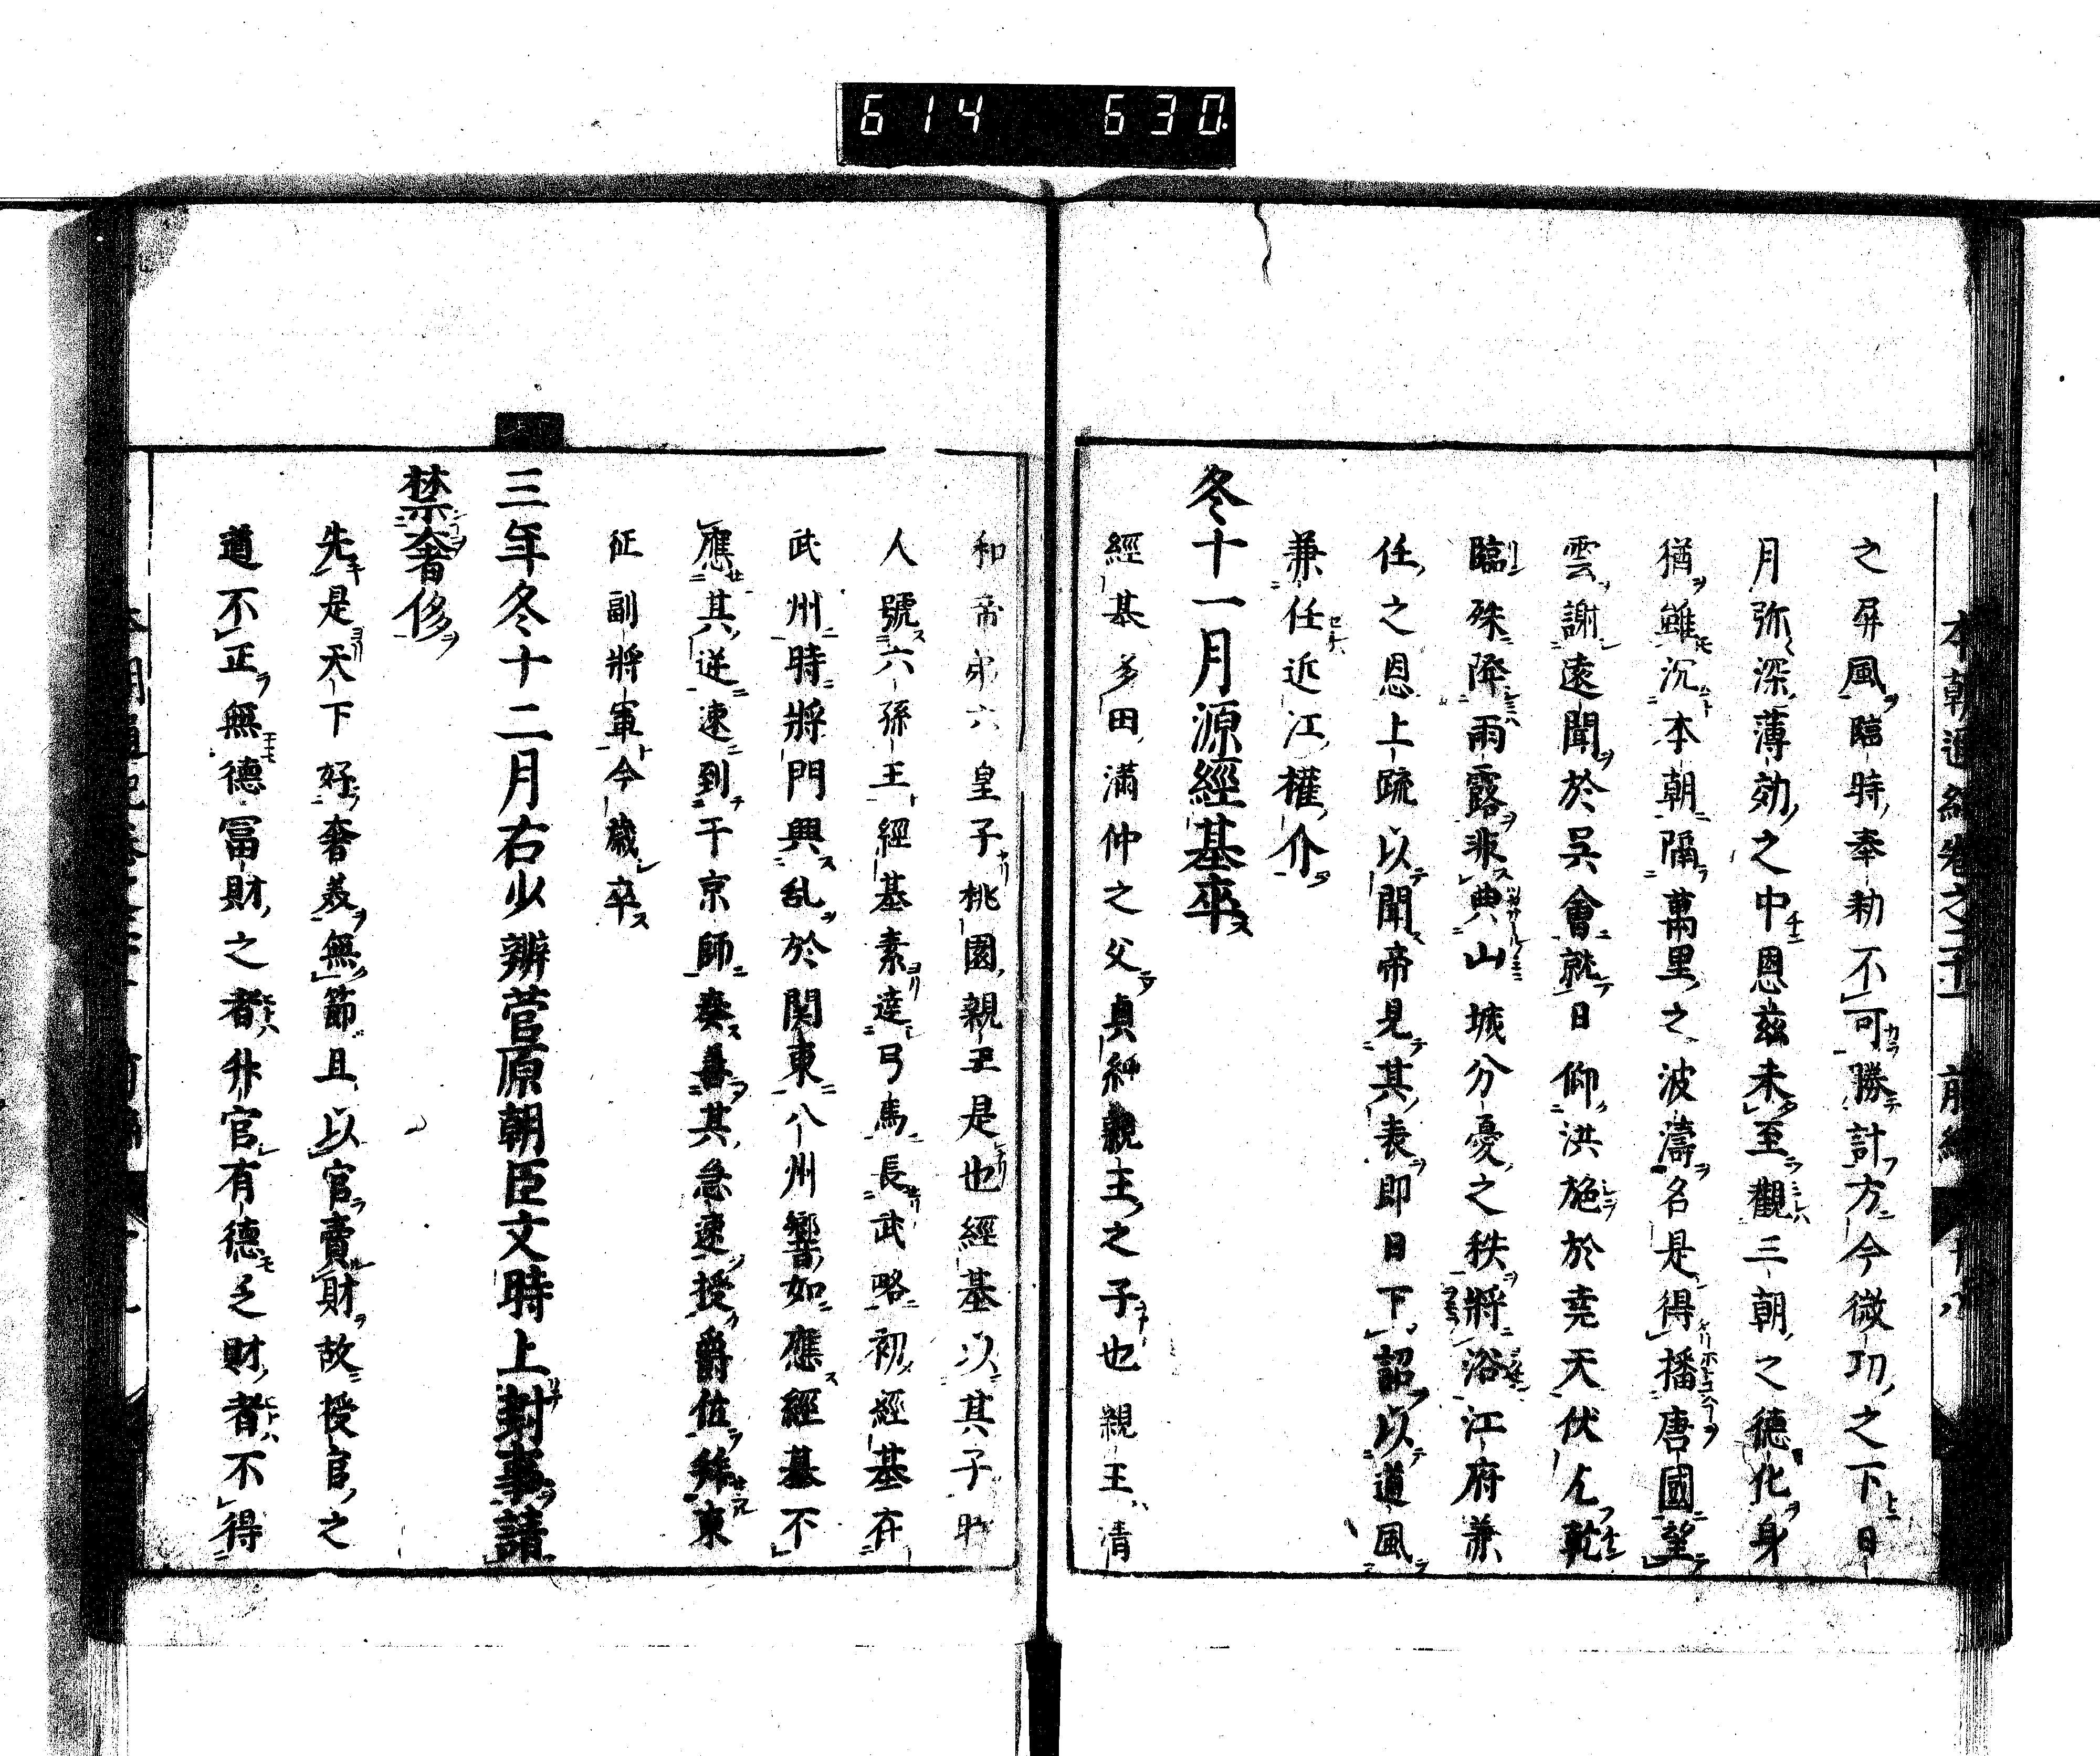 614 630
本朝通紀卷之二十一 前編
之屏風臨時奉勅不可勝計方今微功之下日
月弥深薄効之中恩茲未至觀三朝之德化身
猶雖沉本朝隔萬里之波濤名是得播唐國望
雲謝遠聞於呉會就日仰洪施於堯天伏乞乾
臨殊降雨露非典山城分憂之秩將浴江府兼
任之恩上疏以聞帝見其表即日下詔以道風
兼任近江權介
冬十一月源經基卒
經基多田滿仲之父貞純親王之子也親王清
和帝第六皇子桃園親王是也經基以其子時
人號六孫王經基素達弓馬長武略初經基在
武州時將門興乱於関東八州響如應經基不
應其逆速到于京師奏善其急速授爵位幷東
征副將軍今歲卒
三年冬十二月右少辨菅原朝臣文時上封事請
禁奢侈
先是天下好奢美無節且以官賣財故授官之
道不正無德冨財之者升官有德乏財者不得